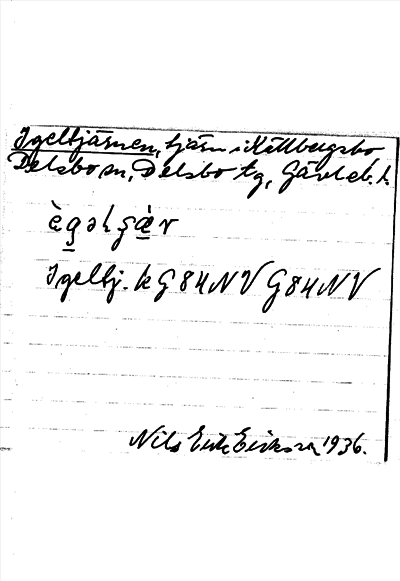 Igeltjärnen, tjärn i Källbergsbo
Delsbo sn, Delsbo tg, Gävleb. l.
Igeltj. k G 84 NV G 84 NV
Nils Erik Erikson 1936.